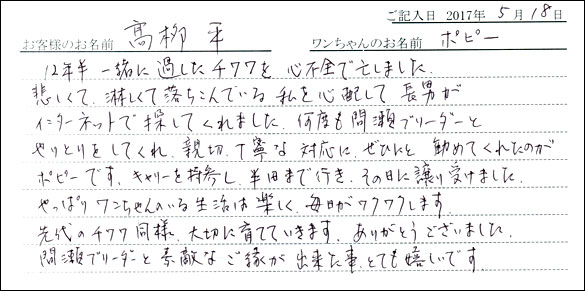 ご記入日 2017年 5月18日
お客様のお名前 高柳 平 ワンちゃんのお名前 ポピー
12年半一緒に過したチワワを心不全で亡しました.
悲しくて、淋しくて落ちこんでいる私を心配して長男が
インターネットで探してくれました. 何度も間瀬ブリーダーと
やりとりをしてくれ、親切、丁寧な対応に、ぜひにと勧めてくれたのが
ポピーです. キャリーを持参し、半田まで行き、その日に譲り受けました.
やっぱりワンちゃんのいる生活は楽しく、毎日がワクワクします.
先代のチワワ同様、大切に育てていきます. ありがとうございました.
間瀬ブリーダーと素敵なご縁が出来た事、とても嬉しいです.